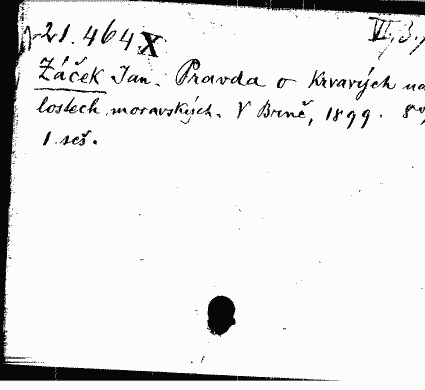 21.464 X VI, 3.
Žáček Jan. Pravda o krvavých
lostech moravských. V Brně, 1899. 8°,
1 seš.